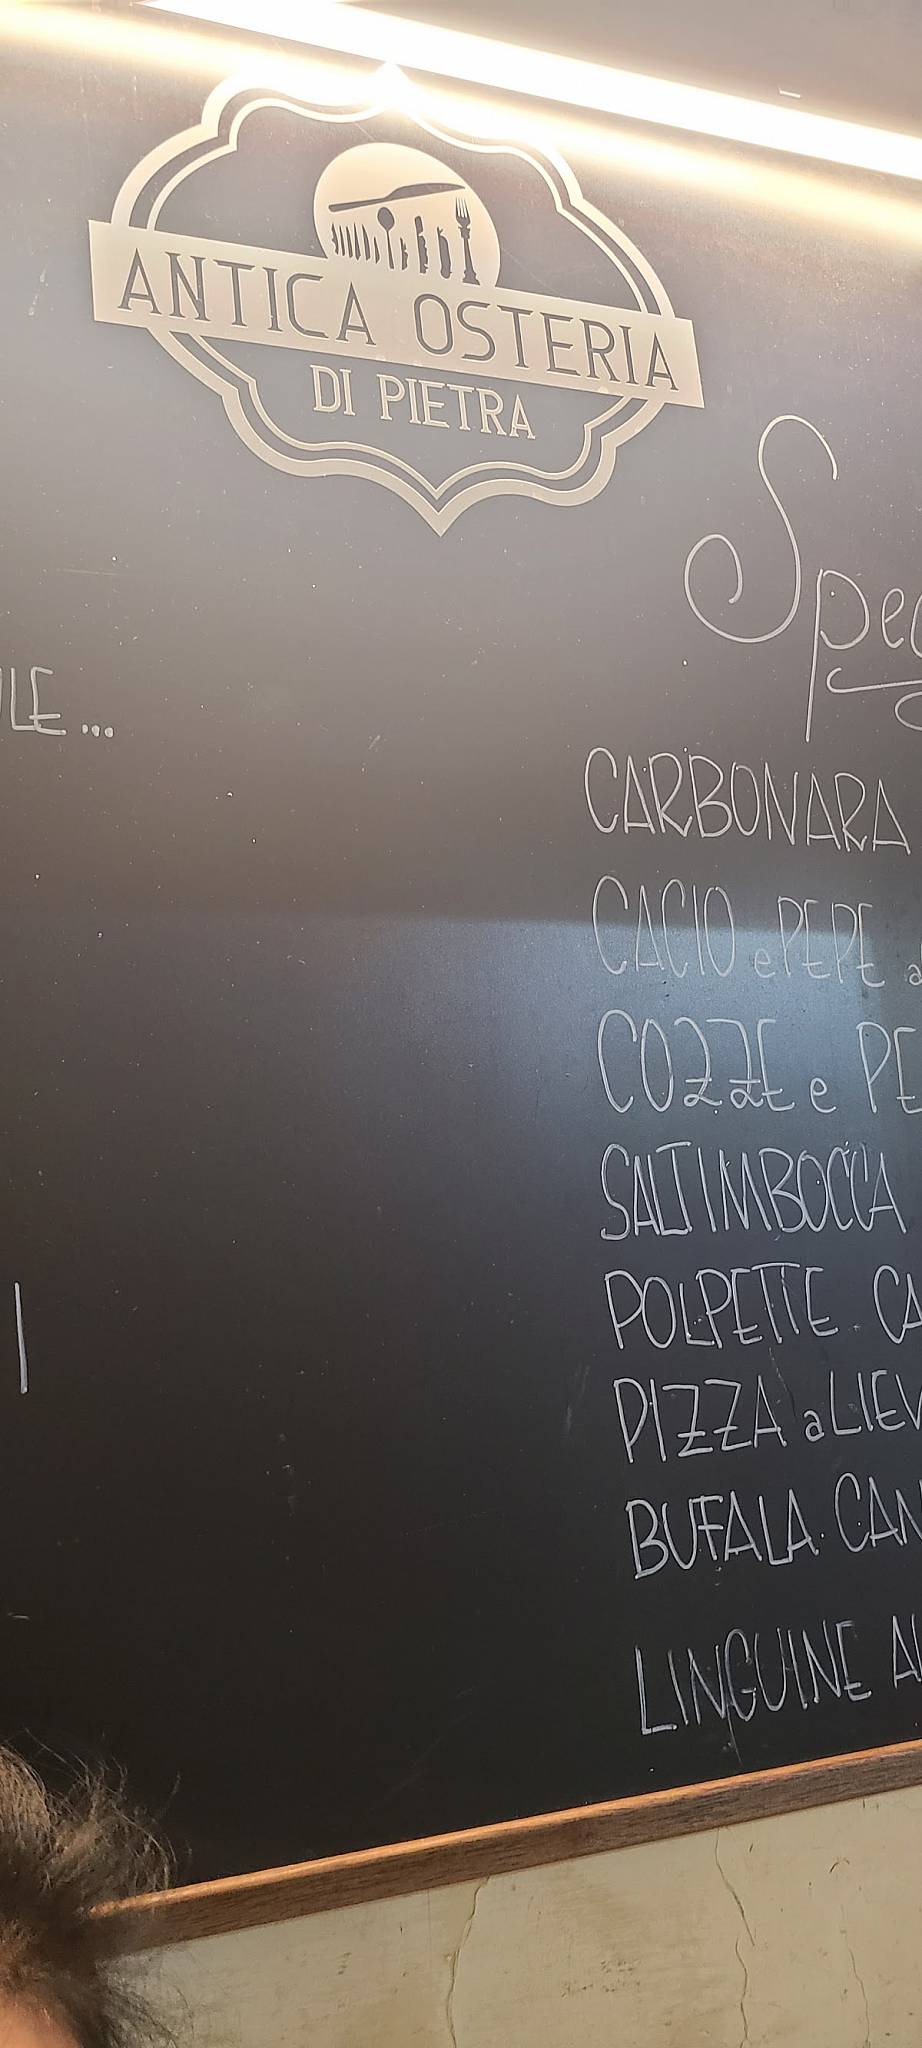 ANTICA OSTERIA
DI PIETRA
CARBONARA
CACIO e PEPE
COZZE e
SALTIMBOCCA
POLPETTE
PIZZA a
BUFALA
LINGUINE